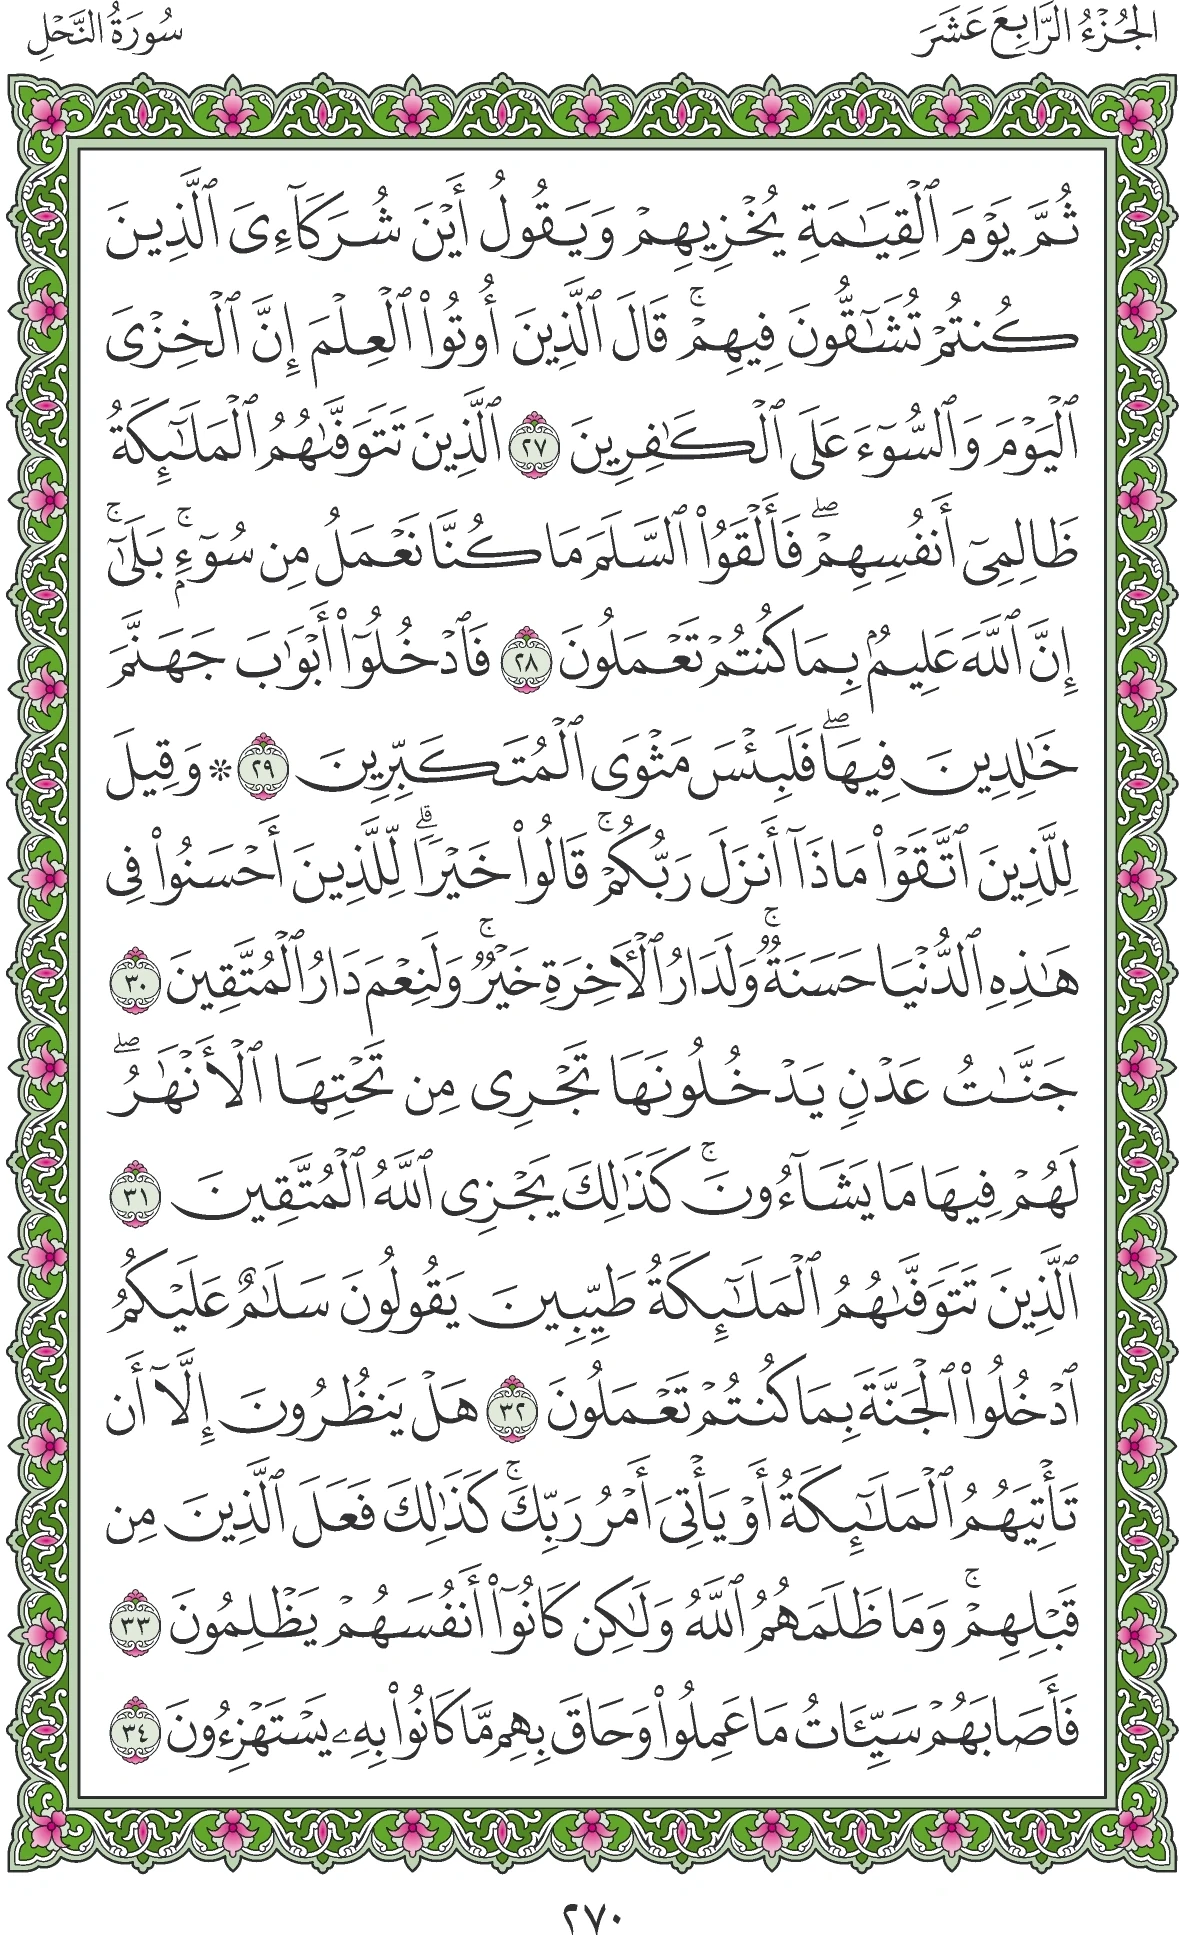 الجُزْءُ الرَّابِعَ عَشَرَ
سُورَةُ النَّحْلِ
ثُمَّ يَوْمَ ٱلْقِيَـٰمَةِ يُخْزِيهِمْ وَيَقُولُ أَيْنَ شُرَكَآءِىَ ٱلَّذِينَ
كُنتُمْ تُشَـٰٓقُّونَ فِيهِمْ ۚ قَالَ ٱلَّذِينَ أُوتُوا۟ ٱلْعِلْمَ إِنَّ ٱلْخِزْىَ
ٱلْيَوْمَ وَٱلسُّوٓءَ عَلَى ٱلْكَـٰفِرِينَ ٢٧ ٱلَّذِينَ تَتَوَفَّىٰهُمُ ٱلْمَلَـٰٓئِكَةُ
ظَالِمِىٓ أَنفُسِهِمْ ۖ فَأَلْقَوُا۟ ٱلسَّلَمَ مَا كُنَّا نَعْمَلُ مِن سُوٓءٍۭ ۚ بَلَىٰٓ ۚ
إِنَّ ٱللَّهَ عَلِيمٌۢ بِمَا كُنتُمْ تَعْمَلُونَ ٢٨ فَٱدْخُلُوٓا۟ أَبْوَٰبَ جَهَنَّمَ
خَـٰلِدِينَ فِيهَا ۖ فَلَبِئْسَ مَثْوَى ٱلْمُتَكَبِّرِينَ ٢٩ ۞ وَقِيلَ
لِلَّذِينَ ٱتَّقَوْا۟ مَاذَآ أَنزَلَ رَبُّكُمْ ۚ قَالُوا۟ خَيْرًا ۗ لِّلَّذِينَ أَحْسَنُوا۟ فِى
هَـٰذِهِ ٱلدُّنْيَا حَسَنَةٌ ۚ وَلَدَارُ ٱلْـَٔاخِرَةِ خَيْرٌ ۚ وَلَنِعْمَ دَارُ ٱلْمُتَّقِينَ ٣٠
جَنَّـٰتُ عَدْنٍ يَدْخُلُونَهَا تَجْرِى مِن تَحْتِهَا ٱلْأَنْهَـٰرُ ۖ
لَهُمْ فِيهَا مَا يَشَآءُونَ ۚ كَذَٰلِكَ يَجْزِى ٱللَّهُ ٱلْمُتَّقِينَ ٣١
ٱلَّذِينَ تَتَوَفَّىٰهُمُ ٱلْمَلَـٰٓئِكَةُ طَيِّبِينَ يَقُولُونَ سَلَـٰمٌ عَلَيْكُمُ
ٱدْخُلُوا۟ ٱلْجَنَّةَ بِمَا كُنتُمْ تَعْمَلُونَ ٣٢ هَلْ يَنظُرُونَ إِلَّآ أَن
تَأْتِيَهُمُ ٱلْمَلَـٰٓئِكَةُ أَوْ يَأْتِىَ أَمْرُ رَبِّكَ ۚ كَذَٰلِكَ فَعَلَ ٱلَّذِينَ مِن
قَبْلِهِمْ ۚ وَمَا ظَلَمَهُمُ ٱللَّهُ وَلَـٰكِن كَانُوٓا۟ أَنفُسَهُمْ يَظْلِمُونَ ٣٣
فَأَصَابَهُمْ سَيِّـَٔاتُ مَا عَمِلُوا۟ وَحَاقَ بِهِم مَّا كَانُوا۟ بِهِۦ يَسْتَهْزِءُونَ ٣٤
٢٧٠